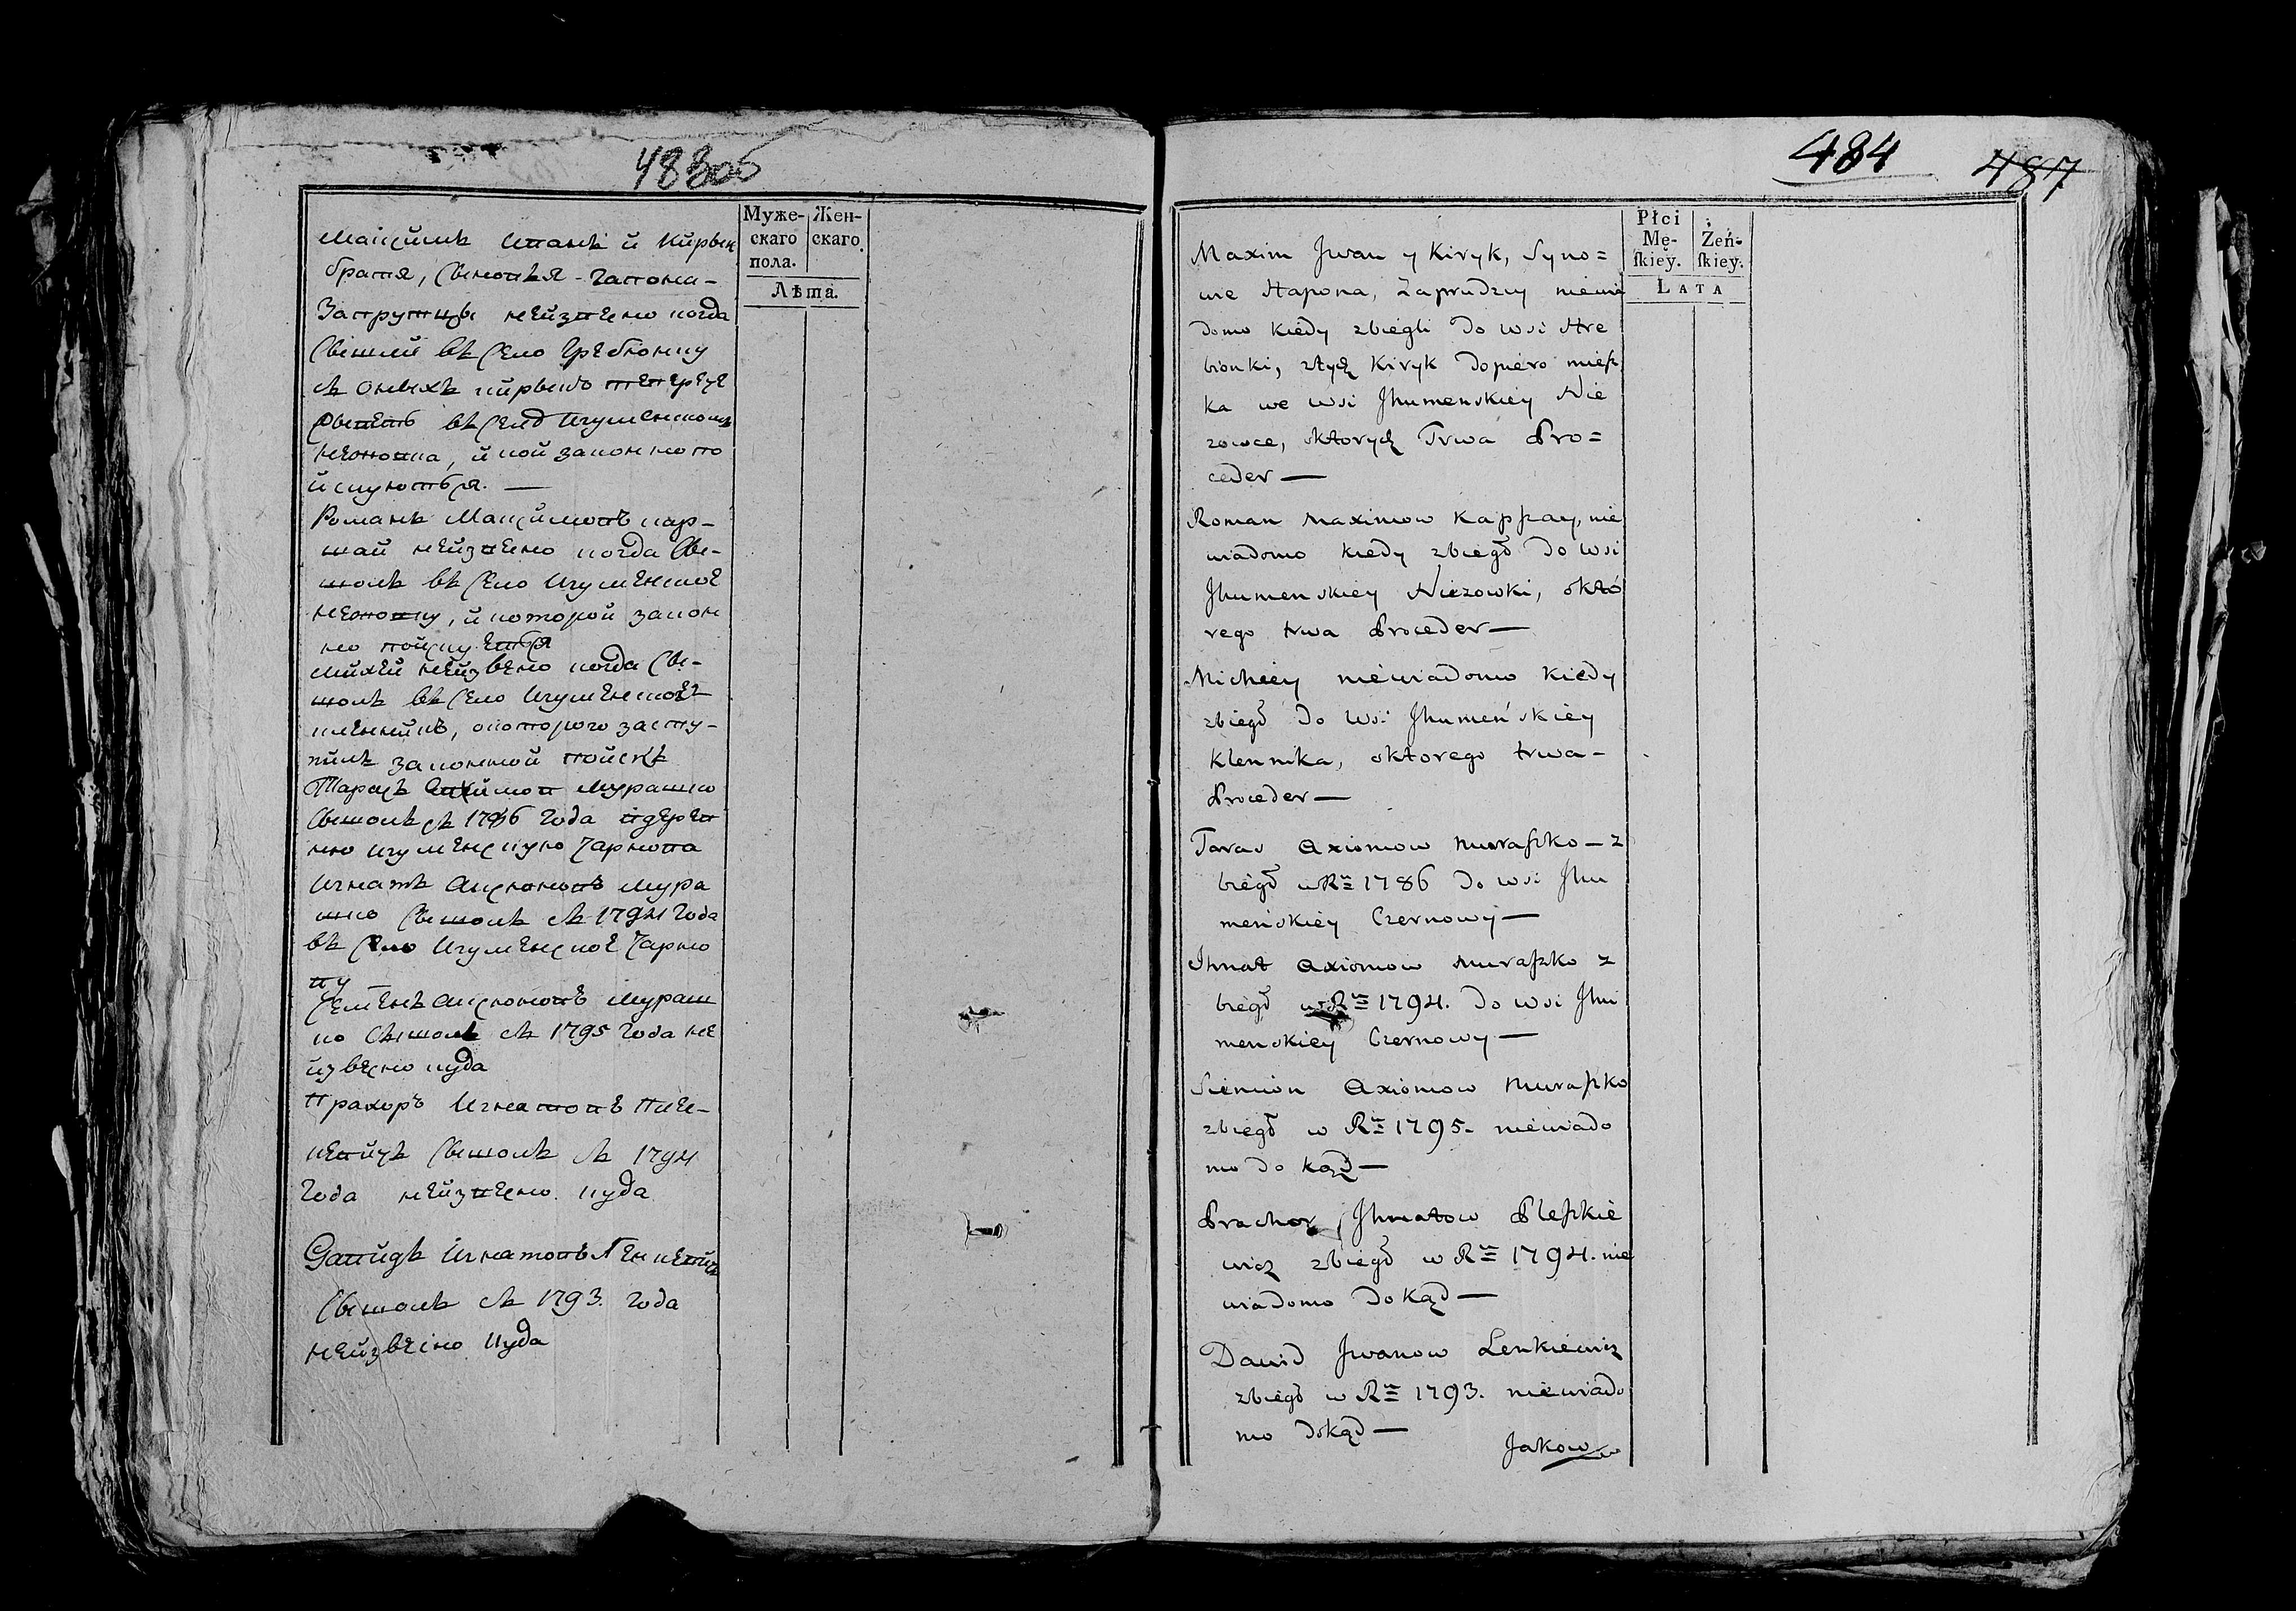 483об
Муже- Жен-
скаго скаго.
пола.
Лѣта.
Максимъ Иванъ и Кирыкъ
братя, Гапона
Запрудцы неизвесно когда
въ село Гребіонку
съ оныхъ Кирыкъ теперече
въ селе Игуменскомъ
и
Романъ Максимовъ Кар-
шай неизвесно когда Збе-
шолъ въ село Игуменское
которой закон
но
Михей неизвесно когда Збе-
шолъ въ село Игуменское
Кленникъ, о которого
законной поискъ
Тарасъ Мурашко
Збешолъ съ 1786 Года в дерев
ню Игуменскую Чарнова
Игнатъ Аксюмовъ Мура
шко Збешолъ съ 1794 Года
въ село Игуменское Чарно
ву
Семенъ Аксюмовъ Мураш
ко Збешолъ съ 1795 Года не
извесно куда
Прахоръ Игнатовъ Пле-
Збешолъ съ 1794
Года неизвесно куда
Давидъ Игнатовъ Ленкевичъ
Збешолъ съ 1793. Года
неизвесно куда
484 487
Płci
Mę- Żeń-
ſkiey. ſkiey.
LATA
Maxim Jwan y Kiryk, Syno=
wie Hapona, Zaprudzcy niewia
domo kiedy zbiegli do wsi Hre
bionki, z tych Kiryk dopiero mieſz
ka we wsi Jhumenskiey Nie
zowce, o ktorych Trwa Pro=
ceder —
Roman Maximow Kapſzay, nie
wiadomo kiedy zbiegł do wsi
Jhumenskiey Niezowki, o któ
rego trwa Proceder —
Micheey niewiadomo kiedy
zbiegł do wsi Jhumeńskiey
Klennika, o ktorego trwa —
Proceder —
Taras Axiomow Muraſzko — z
biegł w Rⁿ 1786 do wsi Jhu
meńskiey Czernowy —
Ihnat Axiomow Muraſzko z
biegł w Rⁿ 1794. do wsi Jhu
menskiey Czernowy —
Siemion Axiomow Muraſzko
zbiegł w Rⁿ 1795. niewiado
mo do kąd —
Prachor Jhnatow Pleſzkie
wicz zbiegł w Rⁿ 1794. nie
wiadomo do kąd —
Dawid Jwanow Lenkiewicz
zbiegł w Rⁿ 1793. niewiado
mo dokąd —
Jakow